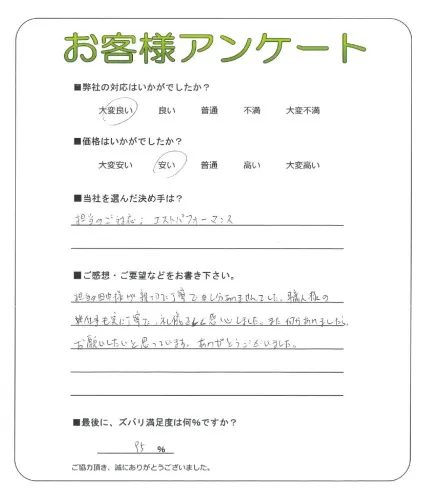 お客様アンケート
■弊社の対応はいかがでしたか？
大変良い 良い 普通 不満 大変不満
■価格はいかがでしたか？
大変安い 安い 普通 高い 大変高い
■当社を選んだ決め手は？
担当のご対応；コストパフォーマンス
■ご感想・ご要望などをお書き下さい。
担当の田中様が親切丁寧で申し分ありませんでした。職人様の
お仕事も実に丁寧で、礼儀正しく感心しました。また何かありましたら
お願いしたいと思っています。ありがとうございました。
■最後に、ズバリ満足度は何％ですか？
95 ％
ご協力頂き、誠にありがとうございました。